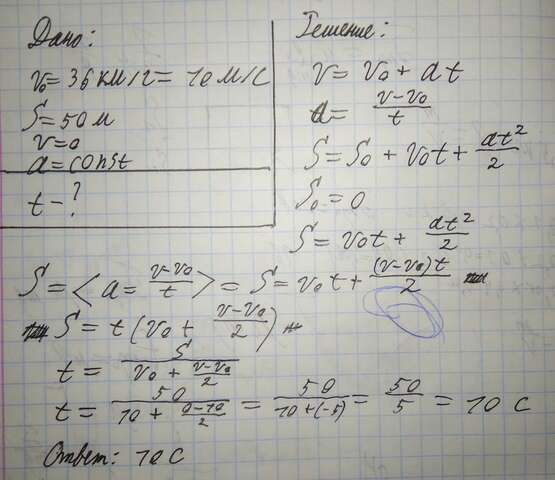 Дано:
v₀ = 36 км/ч = 10 м/с
S = 50 м
v = 0
a = const
t - ?
Решение:
v = v₀ + at
a = (v-v₀)/t
S = S₀ + v₀t + at²/2
S₀ = 0
S = v₀t + at²/2
S = <a = (v-v₀)/t> = S = v₀t + (v-v₀)t/2
S = t(v₀ + (v-v₀)/2)
t = S/(v₀ + (v-v₀)/2)
t = 50/(10 + (0-10)/2) = 50/(10+(-5)) = 50/5 = 10 с
Ответ: 10 с